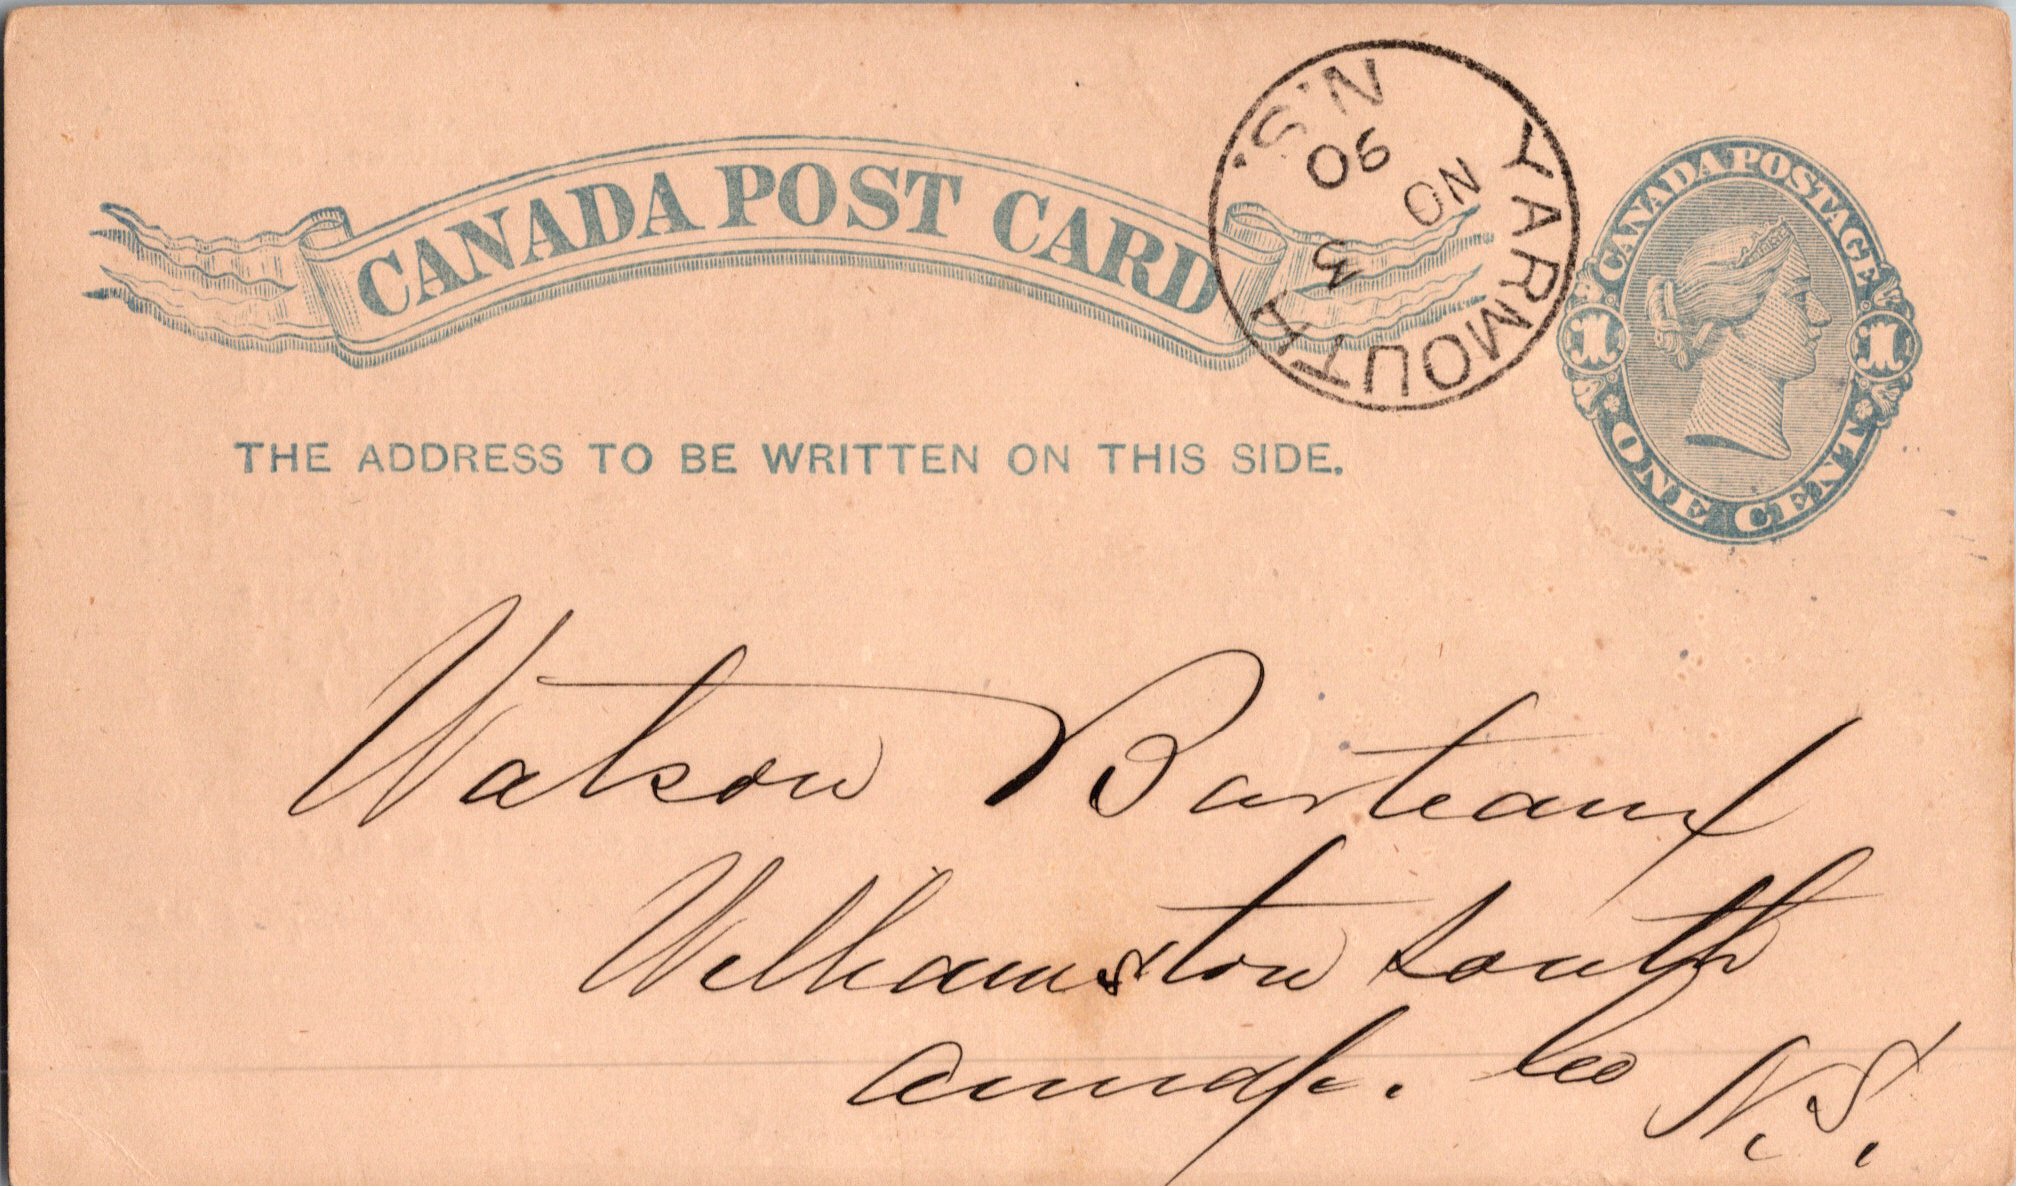 CANADA POST CARD
YARMOUTH N.S.
NO 3
90
CANADA POSTAGE
1 1
ONE CENT
THE ADDRESS TO BE WRITTEN ON THIS SIDE.
Watson Barteaux
Williamston South
Annap. Co N.S.